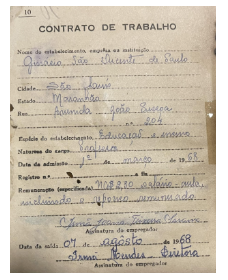 10
CONTRATO DE TRABALHO
Nome do estabelecimento, empresa ou instituição
Ginásio São Vicente de Paulo
Cidade São Luis
Estado Maranhão
Rua Avenida João Pessoa
nº 204
Espécie do estabelecimento Educação e ensino
Natureza do cargo Professora
Data da admissão 1º de março de 1968
Registro n.º fls.
Remuneração (especificada) NCr$ 2,20
incluindo o repouso remunerado
Assinatura do empregador
Data da saída 07 de agôsto de 1968
Irmã Mendes - Diretora
Assinatura do empregador